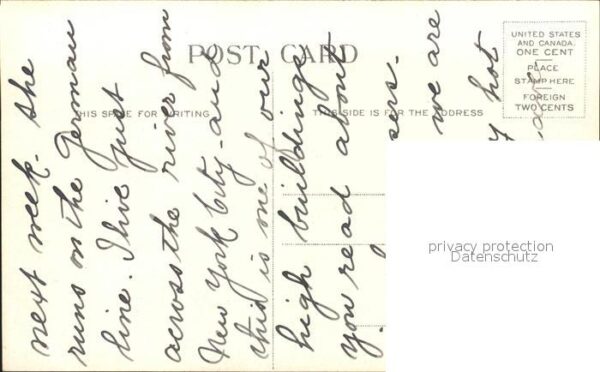 POST CARD
THIS SPACE FOR WRITING
THIS SIDE IS FOR THE ADDRESS
UNITED STATES
AND CANADA
ONE CENT
PLACE
STAMP HERE
FOREIGN
TWO CENTS
next week. She
runs on the German
line. I live just
across the river from
New York City - and
this is one of our
high buildings
you read about
we are
hot
privacy protection
Datenschutz